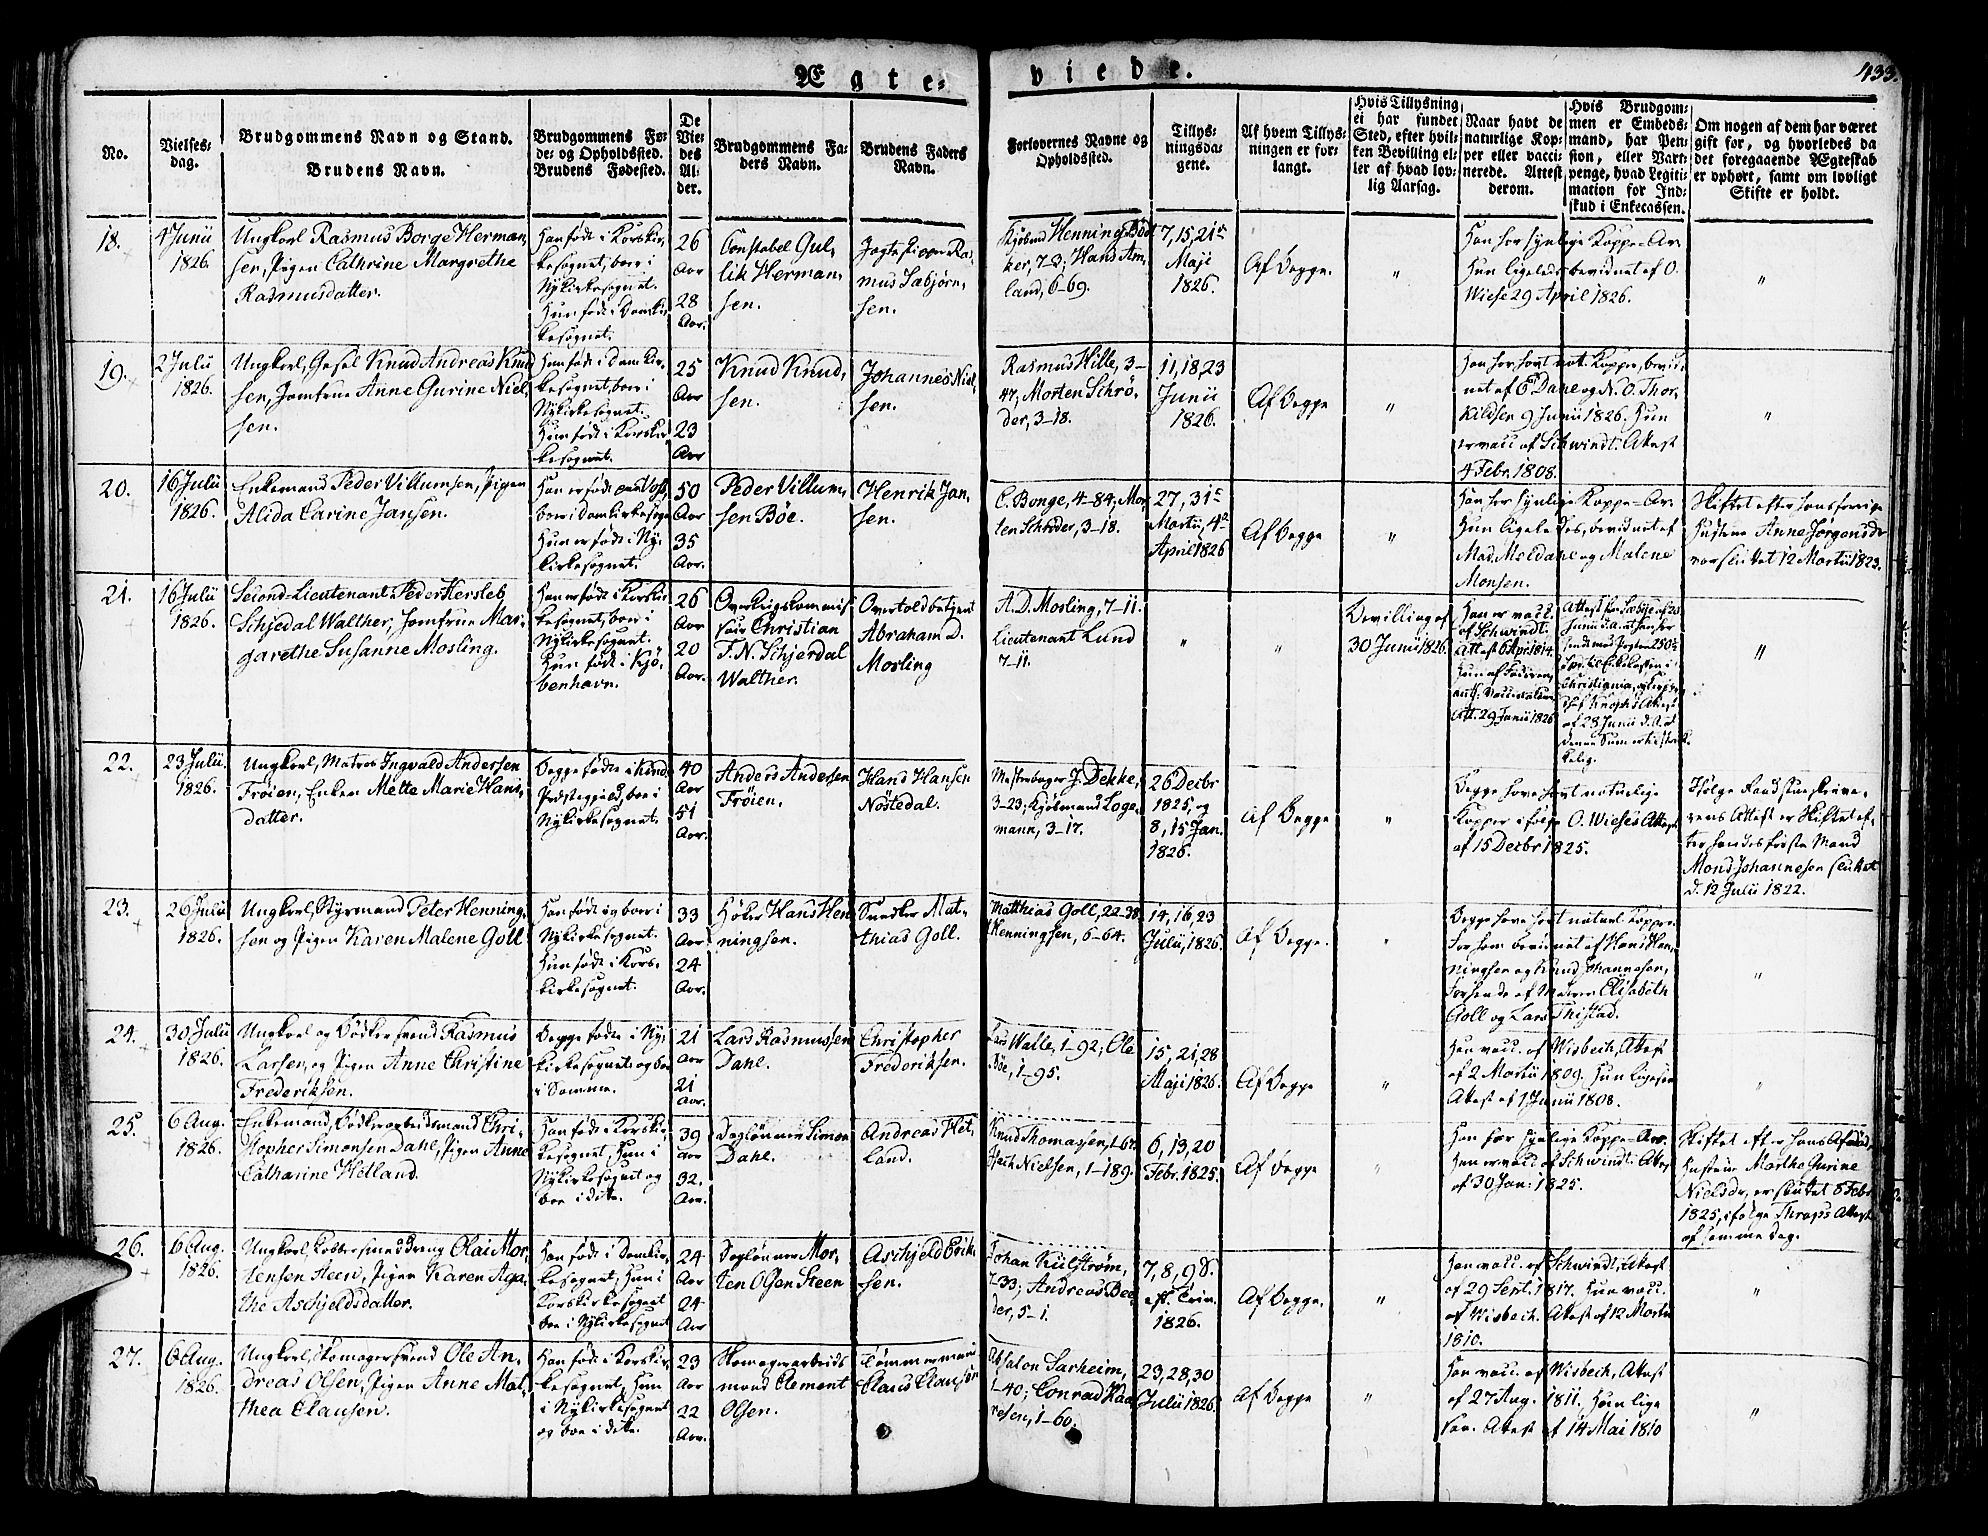 Ægte-
viede.
433.
No.
Vielses-
dag.
Brudgommens Navn og Stand.
Brudens Navn.
Brudgommens Fø-
de- og Opholdssted.
Brudens Fødested.
De
Vie-
des
Al-
der.
Brudgommens Fa-
ders Navn.
Brudens Faders
Navn.
Forlovernes Navne og
Opholdssted.
Tillys-
ningsda-
gene.
Af hvem Tillys-
ningen er for-
langt.
Hvis Tillysning
ei har fundet
Sted, efter hvil-
ken Bevilling el-
ler af hvad lov-
lig Aarsag.
Naar havt de
naturlige Kop-
per eller vacci-
nerede. Attest
derom.
Hvis Brudgom-
men er Embeds-
mand, har Pen-
sion, eller Vart-
penge, hvad Legiti-
mation for Ind-
skud i Enkecassen.
Om nogen af dem har været
gift før, og hvorledes da
det foregaaende Ægteskab
er ophørt, samt om lovligt
Skifte er holdt.
18.
4 Junii
1826.
Ungkarl Rasmus Borge Herman-
sen, Pigen Cathrine Margrethe
Rasmusdatter.
Han født i Korskir-
kesognet, boer i
Nykirkesognet.
Hun født i Domkir-
kesognet.
26
Aar
28
Aar.
Constabel Gul-
lik Herman-
sen.
Jagteskipper Ras-
mus Sæbjørn-
sen.
Kjøbmd Henning Böd-
ker, 7-3; Hans Am-
land, 6-69.
7, 15, 21de
Maji
1826.
Af Begge.
"
Han har synlige Koppe-Ar.
Hun ligeledes bevidnet af O.
Wiese 29 April 1826.
"
19.
2 Julii
1826.
Ungkarl, Gesel Knud Andreas Knud-
sen, Jomfrue Anne Gurine Niel-
sen.
Han født i Domkir-
kesognet, boer i
Nykirkesognet.
Hun født i Korskir-
kesognet.
25
Aar
23
Aar
Knud Knud-
sen.
Johannes Niel-
sen.
Rasmus Hille, 3-
47; Morten Schrø-
der, 3-18.
11, 18, 23
Junii
1826.
Af Begge
"
Han har havt nat. Kopper, bevid-
net af E Dahl og N. O. Thor-
kildsen 9 Junii 1826. Hun
er vacc. af Schwindt. Attest
4 Febr. 1808.
"
20.
16 Julii
1826.
Enkemand Peder Villumsen, Pigen
Alida Carine Jansen.
Han er født paa Vos,
boer i Domkirkesogn
Hun er født i Ny-
kirkesognet.
50
Aar
35
Aar.
Peder Villum-
sen Böe.
Henrik Jan-
sen.
C. Bonge, 4-84, Mor-
ten Schrøder, 3-18.
27, 31te
Martii, 4de
April 1826
Af Begge
"
Han har synlige Koppe-Ar.
Hun ligeledes, bevidnet af
Mad. Moldahl og Malene
Monsen.
Skiftet efter hans forrige
Hustrue Anne Jørgensdr
var sluttet 12 Martii 1823.
21.
16 Julii
1826.
Second-Lieutenant Peder Hersleb
Schjedal Walther, Jomfrue Mar-
garethe Susanne Mosling.
Han er født i Korskir-
kesognet, boer i
Nykirkesognet.
Hun født i Kjø-
benhavn.
26
Aar
20
Aar.
Overkrigskommis-
sair Christian
F. N. Schjerdal
Walther.
Overtoldbetjent
Abraham D.
Mosling
A. D. Mosling, 7-11.
Lieutenant Lund
7-11.
"
"
Bevilling af
30 Junii 1826.
Han er vacc.
af Schwindt.
Attest 6 April 1814.
Attest 29 Junii 1826
af 28 Junii
"
22.
23 Julii
1826.
Ungkarl, Matros Ingvald Andersen
Frøien, Enken Mette Marie Hans-
datter.
Begge fødte i Kinds
Præstegjeld, boe i
Nykirkesognet.
40
Aar
51
Aar.
Anders Andersen
Frøien.
Hans Hansen
Nöstedal.
Mesterbager J. Dekke,
3-23; Kjøbmand Loge-
mann, 3-17.
26 Decbr
1825, og
8, 15 Jan.
1826.
Af Begge
"
Begge have havt naturlige
Kopper ifølge O. Wieses Attest
af 15 Decbr 1825.
Ifølge Raadstueskrive-
rens Attest er Skiftet ef-
ter hendes første Mand
Mons Johannesen sluttet
d. 12 Julii 1822.
23.
26 Julii
1826.
Ungkarl, Styrmand Peter Henning-
sen og Pigen Karen Malene Goll.
Han født og boer i
Nykirkesognet.
Hun født i Kors-
kirkesognet.
33
Aar.
24
Aar.
Høker Hans Hen-
ningsen.
Snedker Mat-
thias Goll.
Matthias Goll, 22-38.
Henningsen, 6-64.
14, 16, 23
Julii, 1826.
Af Begge.
"
Begge have havt naturl. Kopper.
For ham bevidnet af Hans Hen-
ningsen og Knud Johannesen,
For hende af Madam Elisabeth
Goll og Lars Thistad.
"
24.
30 Julii
1826.
Ungkarl og Bødkersvend Rasmus
Larsen, og Pigen Anne Christine
Frederiksen.
Begge fødte i Ny-
kirkesognet og boe
i Samme.
21
Aar
21
Aar.
Lars Rasmussen
Dahl.
Christopher
Frederiksen.
Lars Walle, 1-92; Ole
Böe, 1-95.
15, 21, 28
Maji 1826.
Af Begge
"
Han vacc. af Wisbech, Attest
af 2 Martii 1809. Hun ligesaa
Attest af 1 Junii 1808.
"
25.
6 Aug.
1826.
Enkemand, Bødkerarbeidsmand Chri-
stopher Simonsen Dahl, Pigen Anne
Catharine Hetland.
Han født i Korskir-
kesognet, Hun i
Nykirkesognet og
boe i dito.
39
Aar
32.
Aar.
Daglønner Simon
Dahl.
Andreas Het-
land.
Knud Thomassen, 1-67.
Nielsen, 1-189.
6, 13, 20
Febr. 1825.
Af Begge
"
Han har synlige Koppe-Ar.
Hun er vacc. af Schwindt. Attest
af 30 Jan: 1825.
Skiftet efter hans Afdøde
Hustrue Marthe Gurine
Nielsdr, er sluttet 5 Febr.
1825, ifølge Thraps Attest
af samme Dag.
26.
6 Aug.
1826.
Ungkarl, Kobbersmeddreng Olai Mor-
tensen Steen, Pigen Karen Aga-
the Aschjeldsdatter.
Han født i Domkir-
kesognet, Hun i
Korskirkesognet
boe i Nykirkesognet
24
Aar
24
Aar
Daglønner Mor-
ten Olsen Steen
Aschjeld Erik-
sen.
Johan Kulström,
7-33; Andreas Bee-
der, 5-1.
7, 8, 9 S.
eft. Trin.
1826.
Af Begge.
"
Han vacc. af Schwindt, Attest
af 29 Sept. 1817. Hun vacc.
af Wisbech. Attest af 12 Martii
1810.
"
27.
6 Aug.
1826.
Ungkarl, Skomagersvend Ole An-
dreas Olsen, Pigen Anne Mat-
thea Clausen.
Han født i Korskir-
kesognet, Hun
i Nykirkesognet
og boe i dito.
23
Aar
22
Aar.
Skomagerarbeids-
mand Clement
Olsen.
Tømmermand
Claus Clausen
Absalon Sarheim,
1-40; Conrad Haa-
resen, 1-60.
23, 28, 30
Julii 1826.
Af Begge
"
Han vacc. af Wisbech, Attest
af 27 Aug. 1811. Hun lige-
saa. Attest af 14 Mai 1810
"